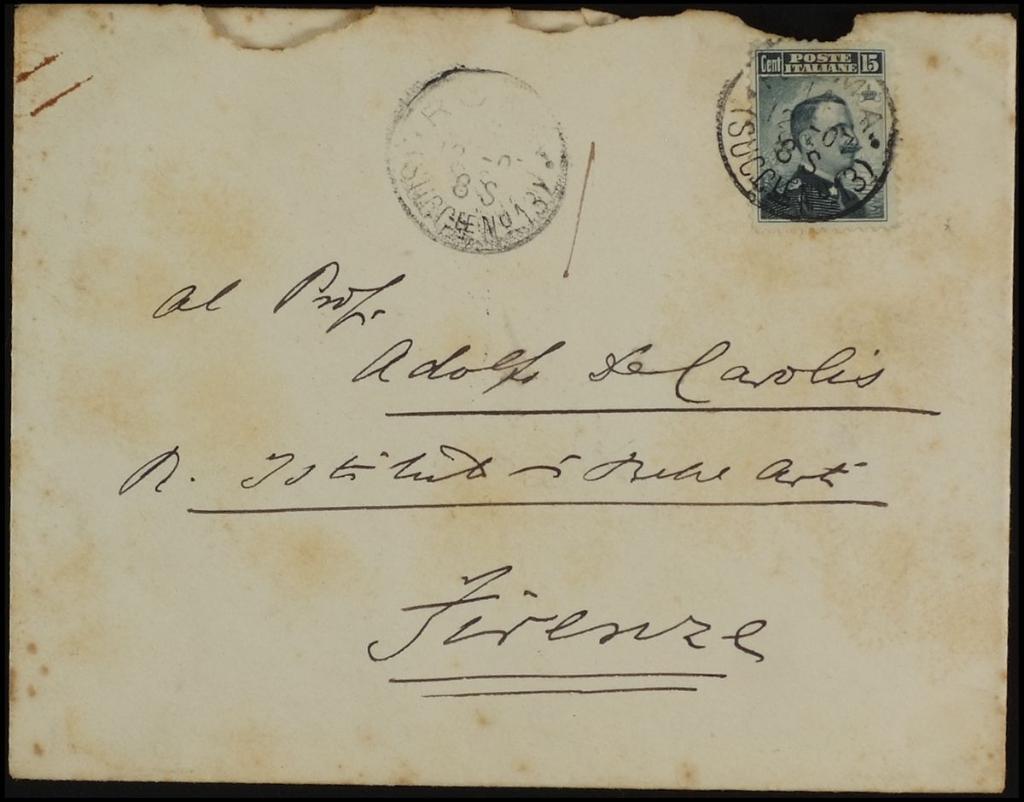 Cent POSTE ITALIANE 15
ROMA
8 S
(SUCCLE No 13)
al Prof.
Adolfo De Carolis
R. Istituto di Belle Arti
Firenze